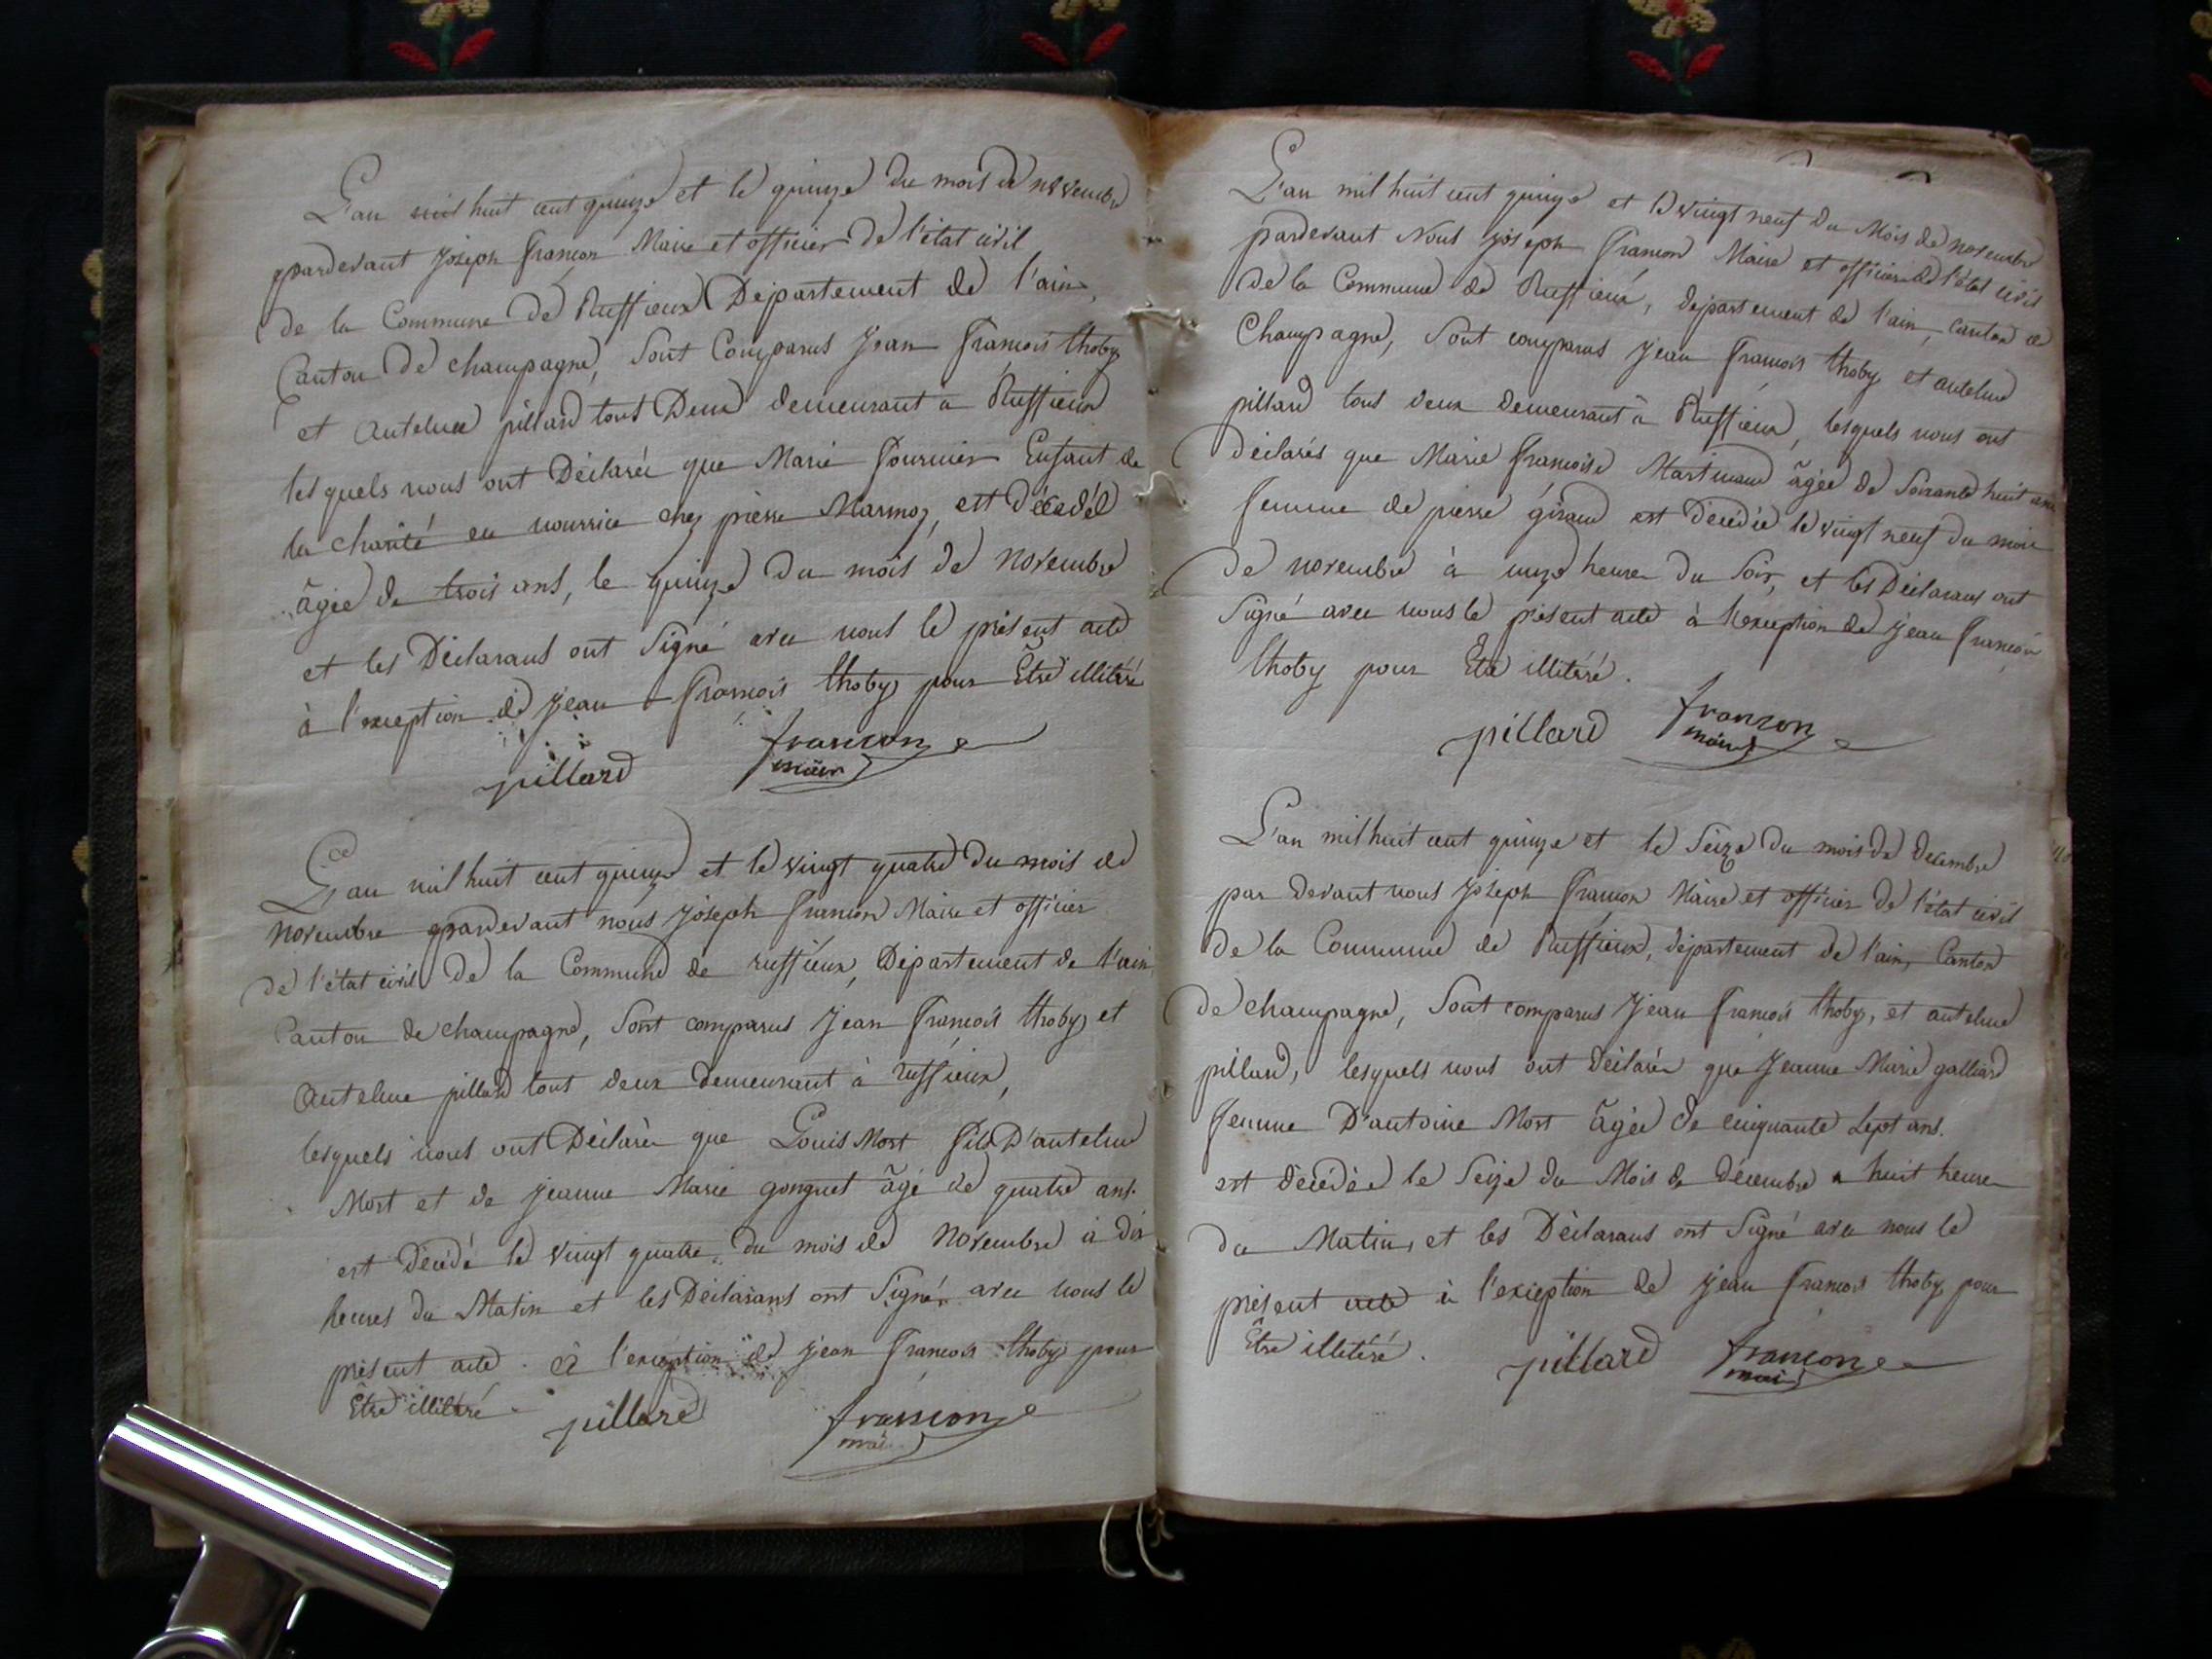 L'an mil huit cent quinze et le quinze du mois de novembre
pardevant Joseph françon Maire et officier de l'état civil
de la Commune de Ruffieux Département de l'ain,
Canton de champagne, sont Comparus Jean françois thoby
et antelme pillard tous Deux demeurant à Ruffieux
lesquels nous ont Déclarés que Marie fournier Enfant de
la charité en nourrice chez pierre Marmoz, est décédée
âgée de trois ans, le quinze du mois de novembre
et les Déclarans ont signé avec nous le présent acte
à l'exception de jean françois thoby pour Être illitéré
pillard françon
maire
L'an mil huit cent quinze et le vingt quatre du mois de
novembre pardevant nous joseph françon Maire et officier
de l'état civil de la Commune de ruffieux, Département de l'ain
Canton de champagne, sont comparus jean françois thoby et
antelme pillard tout deux demeurant à ruffieux,
lesquels nous ont Déclarés que Louis Mort fils D'antelme
Mort et de jeanne Marie gonguet âgé de quatre ans.
est décédé le vingt quatre du mois de novembre à dix
heures du Matin et les Déclarans ont signés avec nous le
présent acte à l'exception de jean françois thoby pour
Être illitéré pillard françon
L'an mil huit cent quinze et le vingt neuf du Mois de novembre
pardevant Nous joseph françon Maire et officier de l'état civil
de la Commune de Ruffieux, département de l'ain, canton de
Champagne, sont comparus jean françois thoby et antelme
pillard tous deux demeurant à Ruffieux, lesquels nous ont
déclarés que Marie françoise Martinand âgée de soixante huit ans
femme de pierre girand est décédée le vingt neuf du mois
de novembre à onze heures du soir, et les Déclarans ont
signé avec nous le présent acte à l'exception de jean françois
thoby pour Etre illitéré.
pillard françon
maire
L'an mil huit cent quinze et le seize du mois de decembre
par devant nous joseph françon Maire et officier de l'état civil
de la Commune de Ruffieux, département de l'ain, Canton
de champagne, sont comparus jean françois thoby, et antelme
pillard, lesquels nous ont déclarés que Jeanne Marie galliard
femme D'antoine Mort âgée de cinquante sept ans.
est décédée le seize du Mois de décembre a huit heures
du Matin, et les Déclarans ont signé avec nous le
présent acte à l'exception de jean françois thoby pour
Être illitéré. pillard françon
maire